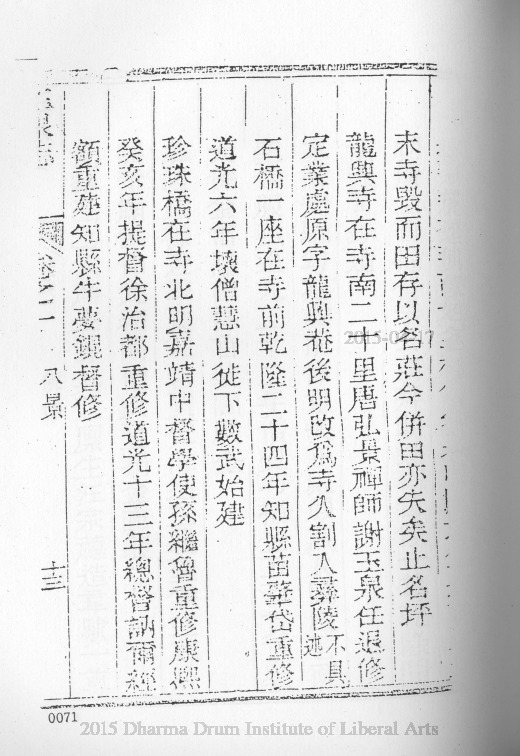 末寺毀而田存以名莊今併田亦失矣止名坪
龍興寺在寺南二十里唐弘景禪師謝玉泉任退修
定業處原字龍興菴後明改爲寺久割入彝陵不具述
石橋一座在寺前乾隆二十四年知縣苗肇岱重修
道光六年壞僧慧山徙下數武始建
珍珠橋在寺北明嘉靖中督學使孫繼魯重修康熙
癸亥年提督徐治都重修道光十三年總督訥爾經
額重建知縣牛夢鏡督修
泉志
卷之二
八景
十三
2015-04-17
0071
2015 Dharma Drum Institute of Liberal Arts